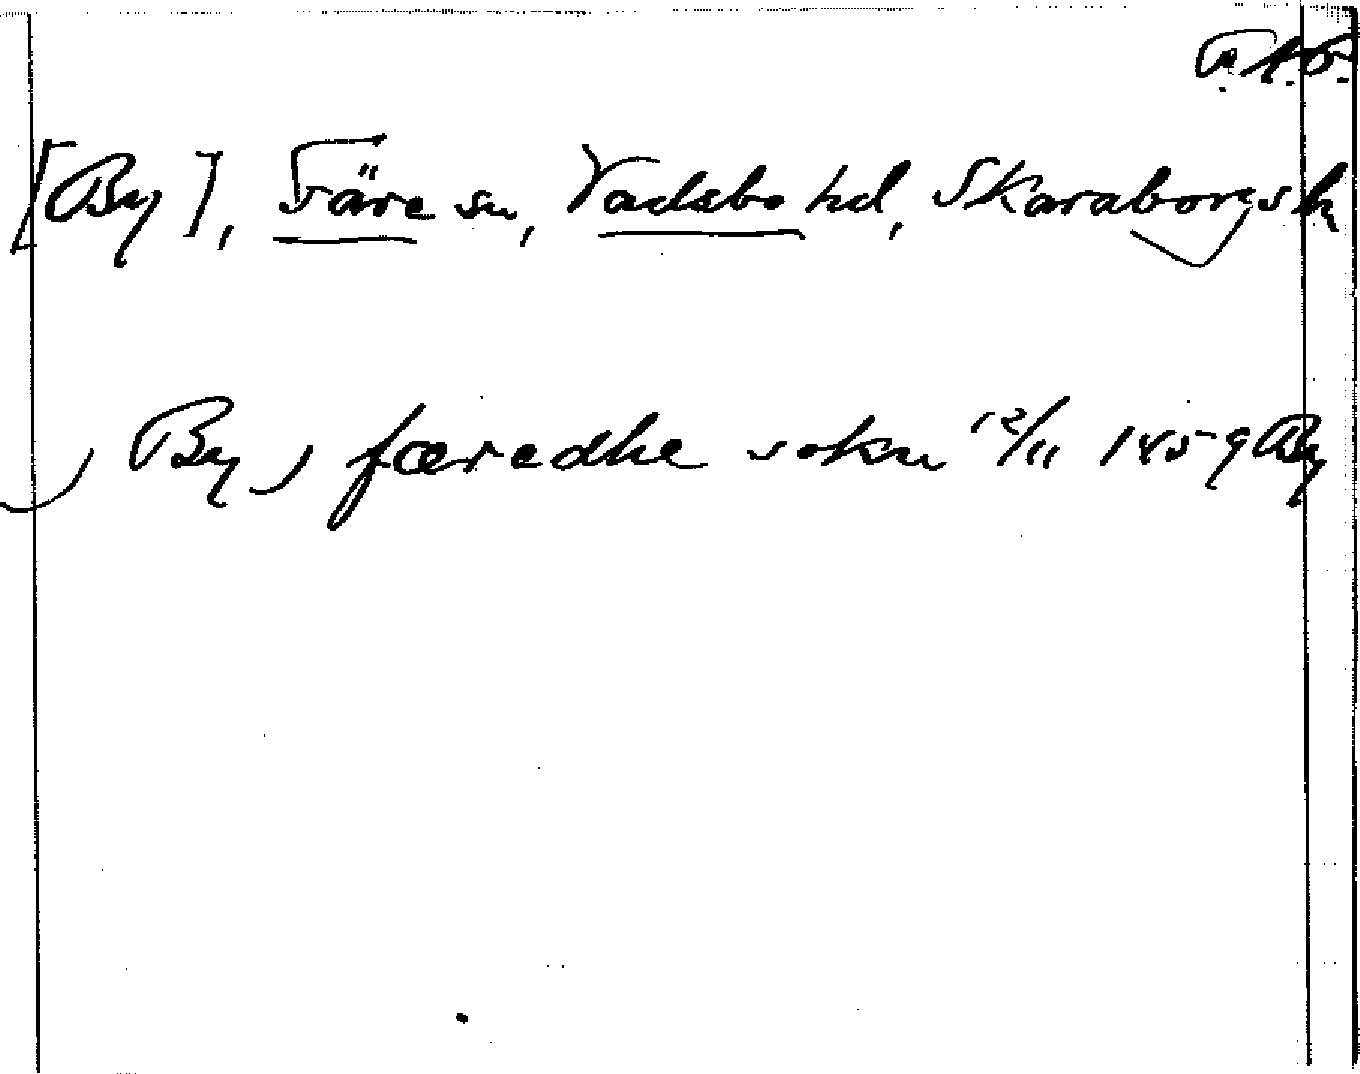 [By], Färe sn, Vadsbo hd, Skaraborgs l.
j By j færedhe sokn 12/11 1459 By